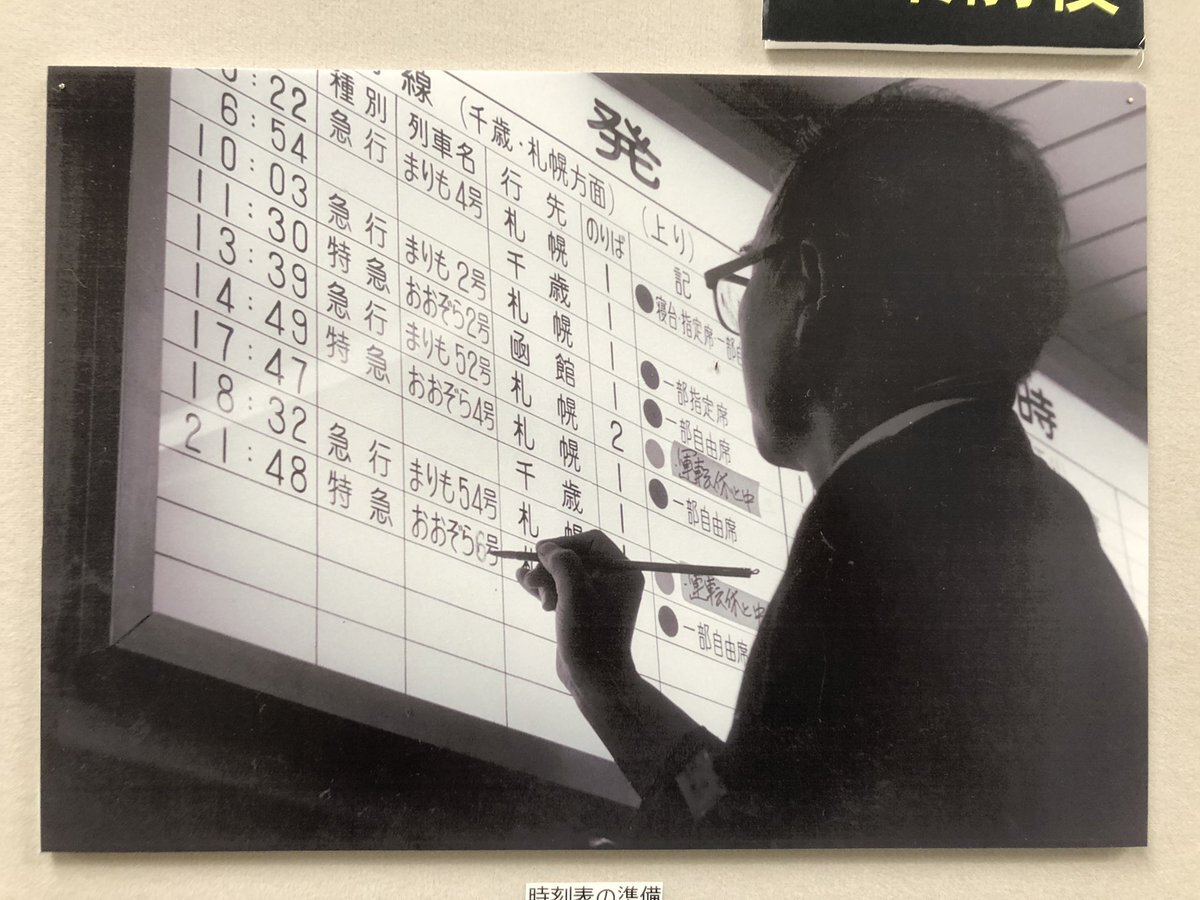 発 時
線 (千歳・札幌方面) (上り)
種別 列車名 行先 のりば 記
:22 急行 まりも4号 札幌 1 ●寝台・指定席・一部自
6:54 千歳 1
10:03 急行 まりも2号 札幌 1 ●一部指定席
11:30 特急 おおぞら2号 函館 1 ●一部自由席
13:39 急行 まりも52号 札幌 2 ●運転休止中
14:49 特急 おおぞら4号 札幌 1 ●一部自由席
17:47 千歳 1
18:32 急行 まりも54号 札幌 1 ●運転休止中
21:48 特急 おおぞら6号 ●一部自由席
時刻表の準備